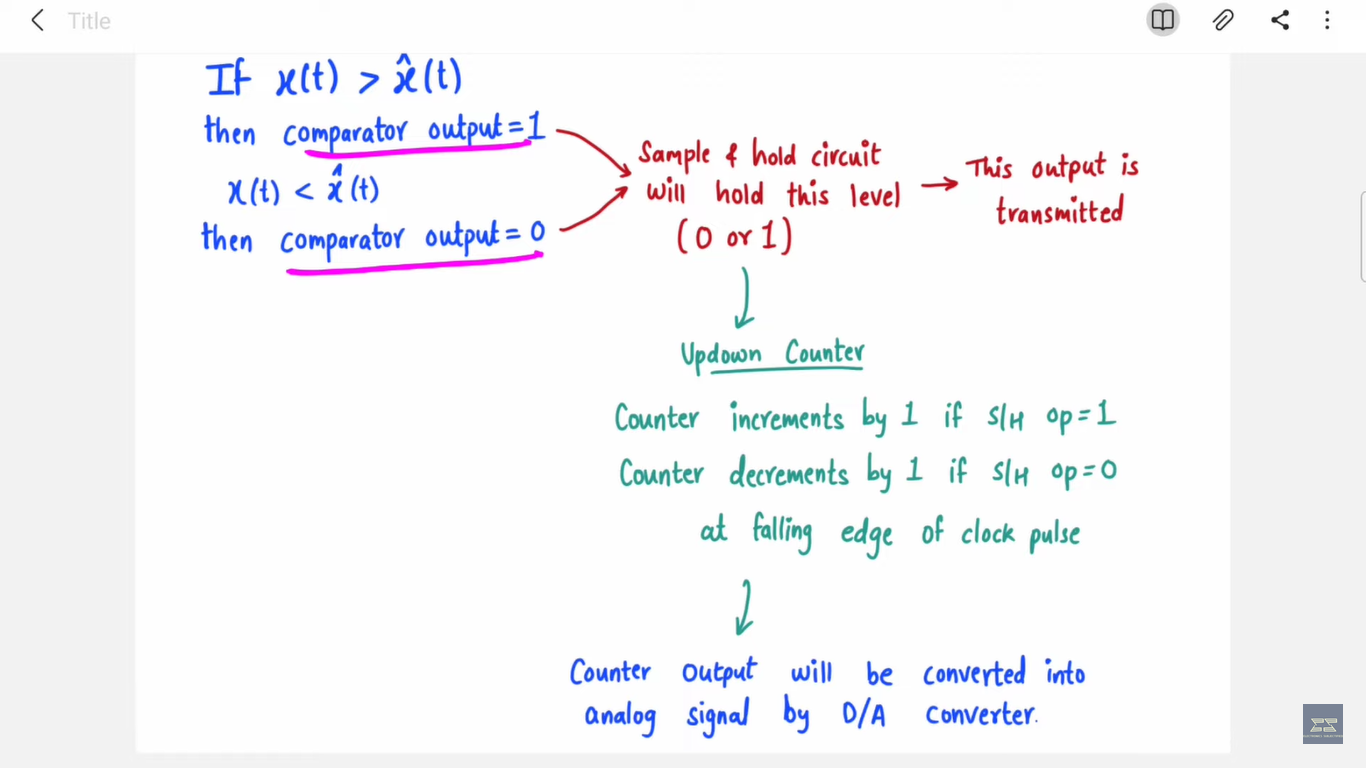 Title
If x(t) > x̂(t)
then comparator output = 1
x(t) < x̂(t)
then comparator output = 0
Sample & hold circuit
will hold this level
(0 or 1)
This output is
transmitted
Updown Counter
Counter increments by 1 if S/H op = 1
Counter decrements by 1 if S/H op = 0
at falling edge of clock pulse
Counter output will be converted into
analog signal by D/A converter.